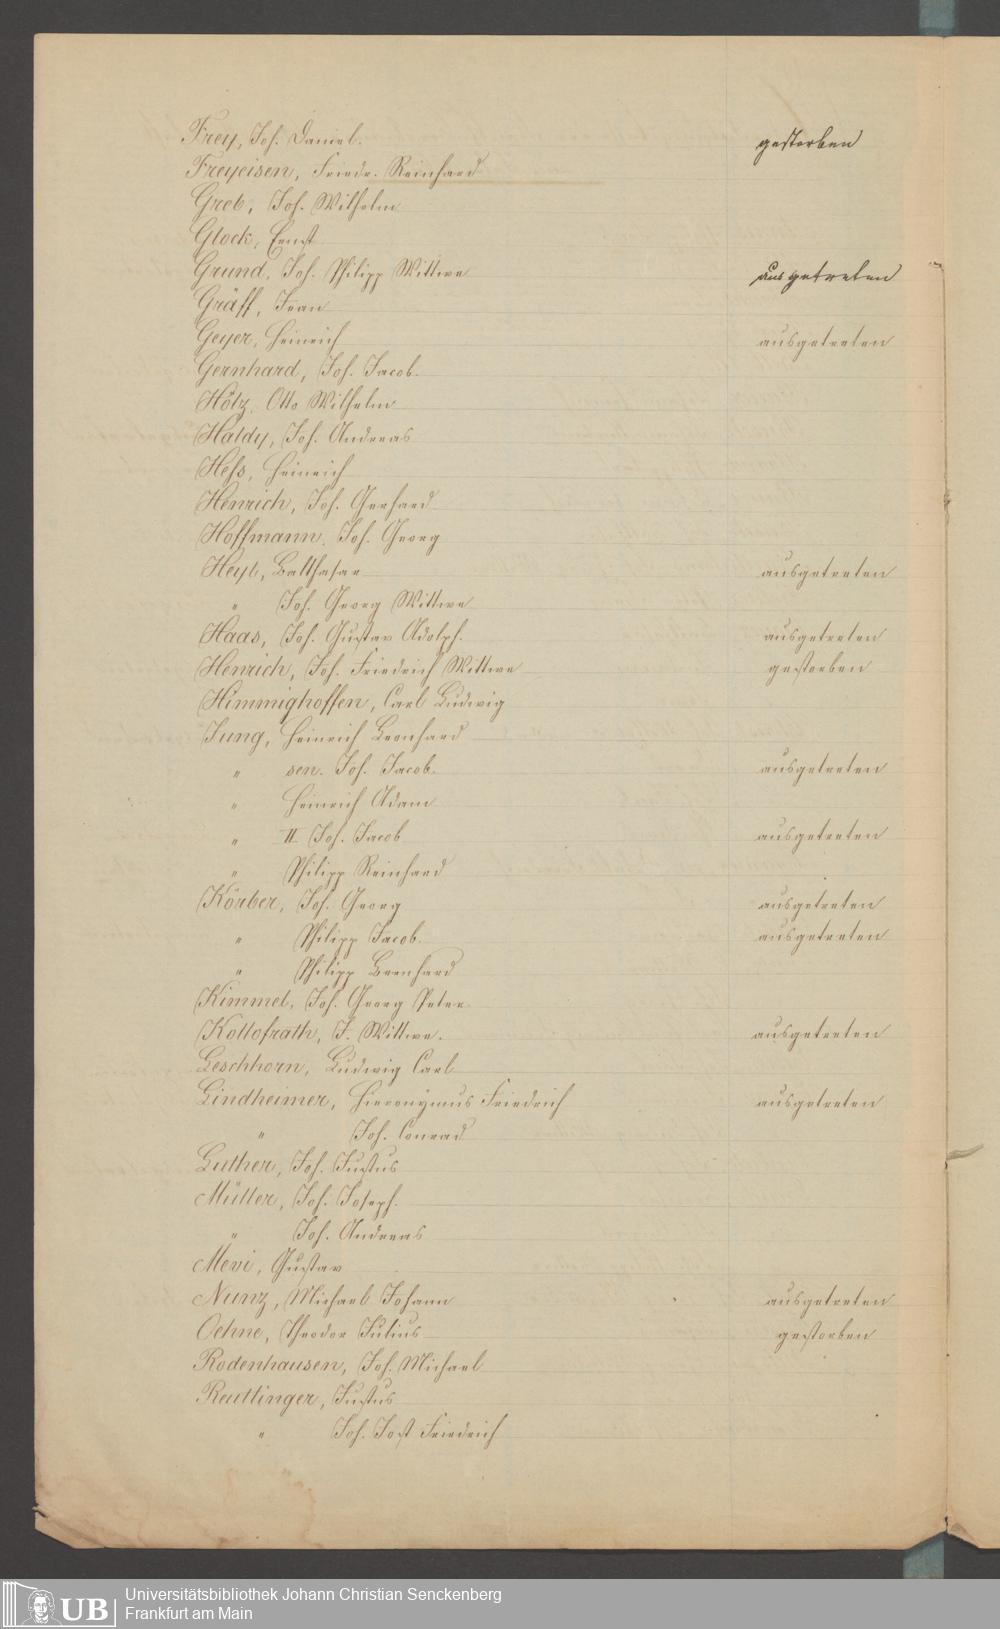 Frey, Joh. Daniel. gestorben
Freyeisen, Friedr. Reinhard
Greb, Joh. Wilhelm
Glock, Ernst
Grund, Joh. Philipp Wittwe ausgetreten
Gräff, Jean
Geyer, Heinrich ausgetreten
Gernhard, Joh. Jacob.
Hölz, Otto Wilhelm
Haldy, Joh. Andreas
Hess, Heinrich
Henrich, Joh. Gerhard
Hoffmann, Joh. Georg
Heyl, Balthasar ausgetreten
" Joh. Georg Wittwe
Haas, Joh. Gustav Adolph. ausgetreten
Henrich, Joh. Friedrich Wittwe gestorben
Himmighoffen, Carl Ludwig
Jung, Heinrich Bernhard
" sen. Joh. Jacob. ausgetreten
" Heinrich Adam
" II Joh. Jacob ausgetreten
" Philipp Reinhard
Körber, Joh. Georg ausgetreten
" Philipp Jacob. ausgetreten
" Philipp Bernhard
Kimmel, Joh. Georg Peter
Kollofrath, J. Wittwe. ausgetreten
Leschhorn, Ludwig Carl
Lindheimer, Hieronymus Friedrich ausgetreten
" Joh. Conrad
Luther, Joh. Justus
Müller, Joh. Joseph.
" Joh. Andreas
Mevi, Gustav
Nunz, Michael Johann ausgetreten
Oehne, Theodor Julius gestorben
Rodenhausen, Joh. Michael
Reutlinger, Justus
" Joh. Jost Friedrich
UB
Universitätsbibliothek Johann Christian Senckenberg
Frankfurt am Main